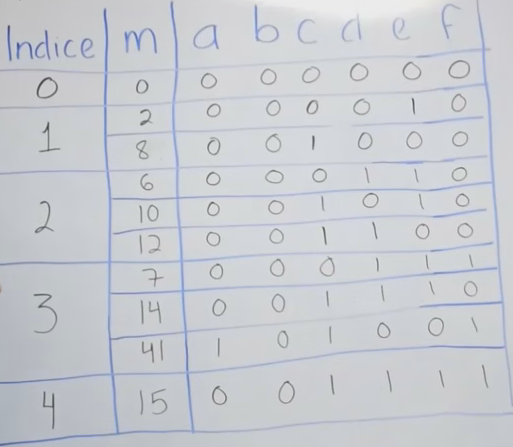 Indice m a b c d e f
0 0 0 0 0 0 0 0
1 2 0 0 0 0 1 0
8 0 0 1 0 0 0
2 6 0 0 0 1 1 0
10 0 0 1 0 1 0
12 0 0 1 1 0 0
3 7 0 0 0 1 1 1
14 0 0 1 1 1 0
41 1 0 1 0 0 1
4 15 0 0 1 1 1 1